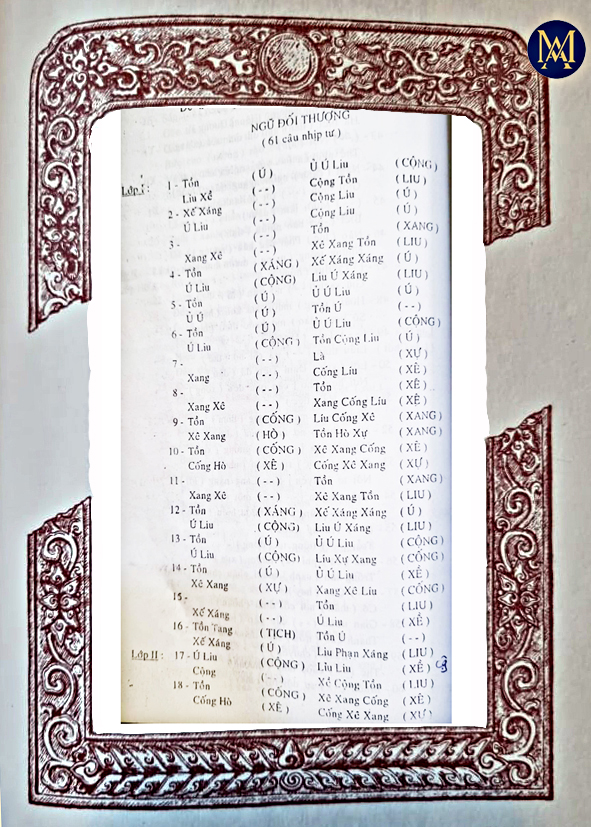 NGŨ ĐỐI THƯỢNG
( 61 câu nhịp tư )
Lớp I : 1 - Tồn ( Ú ) Ủ Ú Liu ( CỘNG )
Liu Xể ( - - ) Cộng Tồn ( LIU )
2 - Xế Xáng ( - - ) Cộng Liu ( Ú )
Ú Liu ( - - ) Cộng Liu ( Ú )
3 - ( - - ) Tồn ( XANG )
Xang Xê ( - - ) Xê Xang Tồn ( LIU )
4 - Tồn ( XÁNG ) Xế Xáng Xáng ( Ú )
Ú Liu ( CỘNG ) Liu Ú Xáng ( LIU )
5 - Tồn ( Ú ) Ủ Ú Liu ( Ú )
Ủ Ú ( Ú ) Tồn Ú ( - - )
6 - Tồn ( Ú ) Ủ Ú Liu ( CỘNG )
Ú Liu ( CỘNG ) Tồn Cộng Liu ( Ú )
7 - ( - - ) Là ( XỰ )
Xang ( - - ) Cống Liu ( XÊ )
8 - ( - - ) Tồn ( XÊ )
Xang Xê ( - - ) Xang Cống Liu ( XÊ )
9 - Tồn ( CỐNG ) Liu Cống Xê ( XANG )
Xê Xang ( HÒ ) Tồn Hò Xự ( XANG )
10 - Tồn ( CỐNG ) Xê Xang Cống ( XÊ )
Cống Hò ( XÊ ) Cống Xê Xang ( XỰ )
11 - ( - - ) Tồn ( XANG )
Xang Xê ( - - ) Xê Xang Tồn ( LIU )
12 - Tồn ( XÁNG ) Xế Xáng Xáng ( Ú )
Ú Liu ( CỘNG ) Liu Ú Xáng ( LIU )
13 - Tồn ( Ú ) Ủ Ú Liu ( CỘNG )
Ú Liu ( CỘNG ) Liu Xự Xang ( CỐNG )
14 - Tồn ( Ú ) Ủ Ú Liu ( XỂ )
Xê Xang ( XỰ ) Xang Xê Liu ( CỐNG )
15 - ( - - ) Tồn ( LIU )
Xế Xáng ( - - ) Ú Liu ( XỂ )
16 - Tồn Tang ( TỊCH ) Tồn Ú ( - - )
Xế Xáng ( Ú ) Liu Phạn Xáng ( LIU )
Lớp II : 17 - Ú Liu ( CỘNG ) Liu Liu ( XỂ )
Cộng ( - - ) Xể Cộng Tồn ( LIU )
18 - Tồn ( CỐNG ) Xê Xang Cống ( XÊ )
Cống Hò ( XÊ ) Cống Xê Xang ( XỰ )